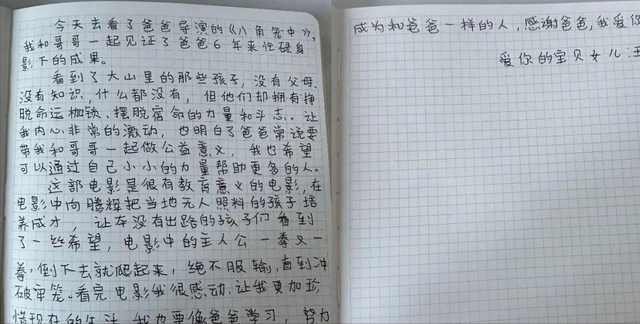 今天去看了爸爸导演的《八角笼中》,
我和哥哥一起见证了爸爸6年来忙碌身
影下的成果。
看到了大山里的那些孩子,没有父母、
没有知识,什么都没有,但他们却拥有挣
脱命运枷锁、摆脱宿命的力量和斗志。让
我内心非常的激动,也明白了爸爸常说要
带我和哥哥一起做公益意义,我也希望
可以通过自己小小的力量帮助更多的人。
这部电影是很有教育意义的电影,在
电影中向腾辉把当地无人照料的孩子培
养成才,让本没有出路的孩子们看到
了一丝希望,电影中的主人公一拳又一
拳,倒下去就爬起来,绝不服输,直到冲
破牢笼。看完电影我很感动,让我更加珍
惜现在的生活,我也要像爸爸学习,努力
成为和爸爸一样的人,感谢爸爸,我爱
爱你的宝贝女儿: